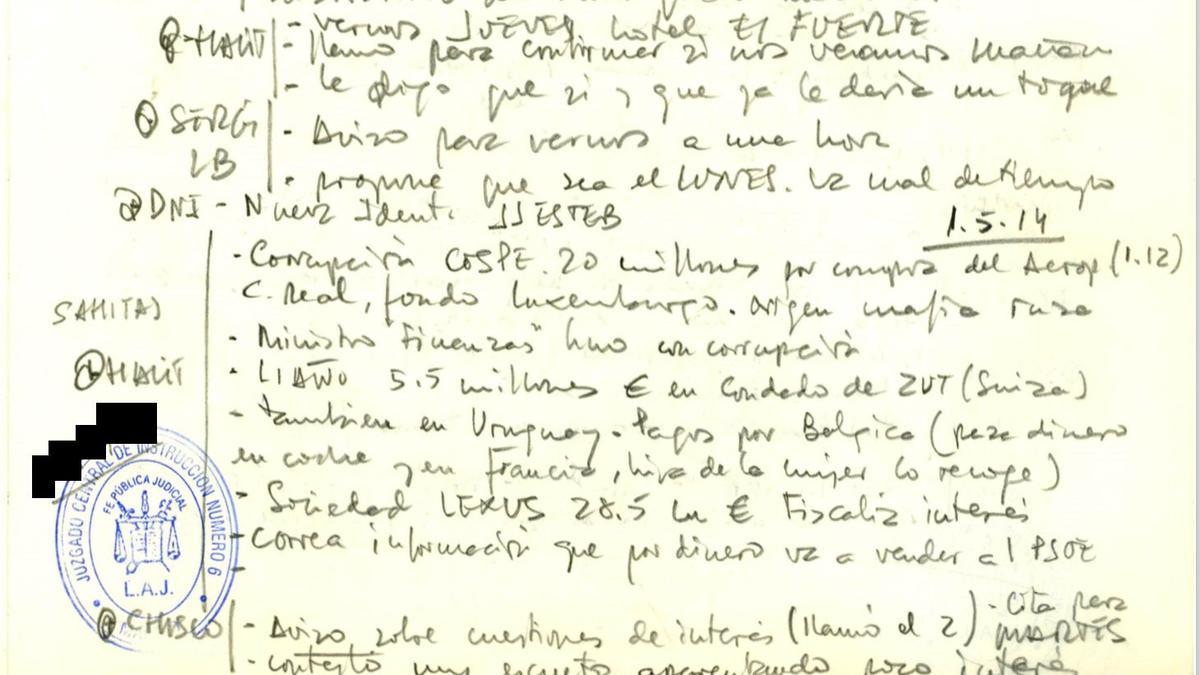 - vernos JUEVES hotel El FUERTE
- llamo para confirmar si nos veramos mañan
- le digo que si y que ya le daria un toque
SERGI
LB
- Aviso para vernos a una hora
- propone que sea el LUNES. va mal de tiempo
DNI - Nueva Ident. JJ ESTEB
1.5.14
- Corrupción COSPE. 20 millones por compra del Aerop (1.12)
C. Real, fondo Luxemburgo. origen mafia rusa
SAHITAS
- Ministro "Finanzas" huo con corrupción
- LIAÑO 5.5 millones € en Condado de ZUT (Suiza)
- tambien en Uruguay. Pagos por Belgica (pasa dinero
en coche y en Francia, hija de la mujer lo recoge)
- Sociedad LEXUS 28.5 € Fiscalia interés
- Correa información que por dinero va a vender al PSOE
-
CHISCO
- Aviso sobre cuestiones de interés (llamó el 2)
- Cita para
MARTES
- contestó muy escueto aparentando poco interés
JUZGADO CENTRAL DE INSTRUCCION NUMERO 6
FE PÚBLICA JUDICIAL
L.A.J.